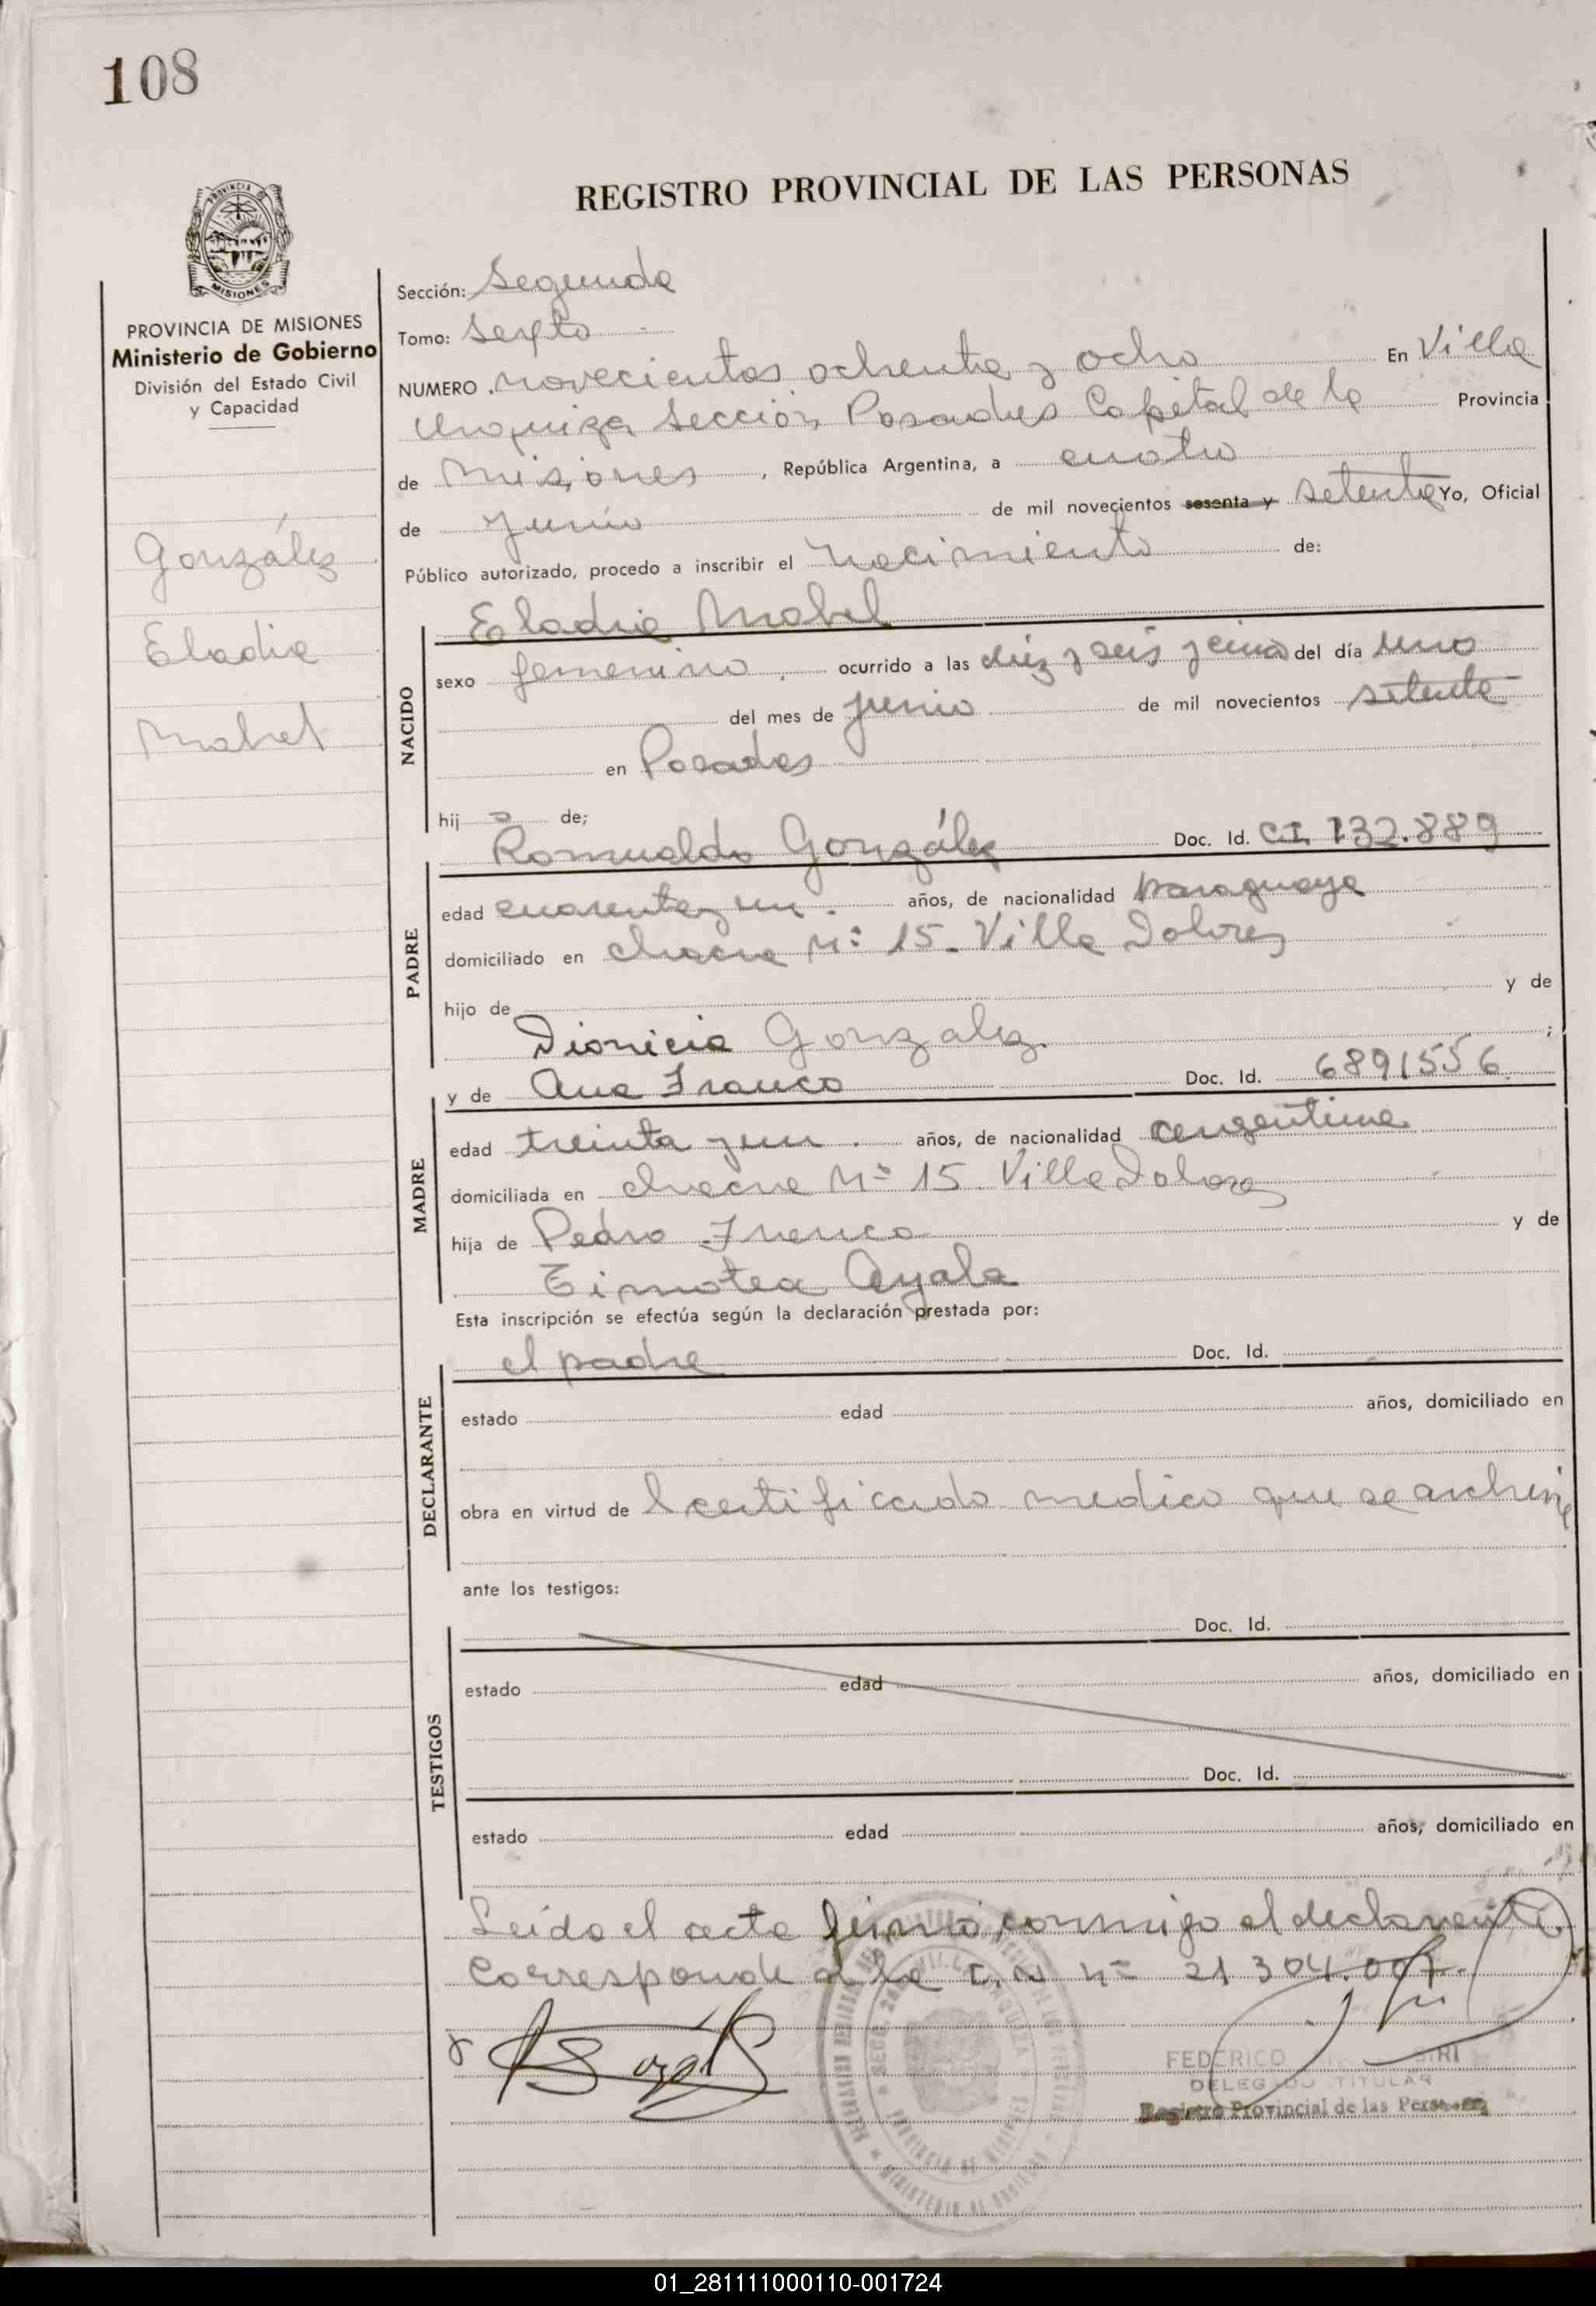 108
REGISTRO PROVINCIAL DE LAS PERSONAS
PROVINCIA
MISIONES
PROVINCIA DE MISIONES
Ministerio de Gobierno
División del Estado Civil
y Capacidad
González
Eladia
Mabel
Sección: Segunda
Tomo: Sexto
NUMERO novecientos ochenta y ocho En Villa
Urquiza Sección Posadas Capital de la Provincia
de Misiones, República Argentina, a cuatro
de Junio de mil novecientos sesenta y setenta Yo, Oficial
Público autorizado, procedo a inscribir el nacimiento de:
Eladia Mabel
NACIDO
sexo femenino, ocurrido a las diez y seis y cinco del día uno
del mes de junio de mil novecientos setenta
en Posadas
hij a de;
Romualdo González Doc. Id. C.I. 132.889
PADRE
edad cuarenta y un. años, de nacionalidad paraguaya
domiciliado en chacra Nº 15. Villa Dolores
hijo de y de
Dionicia Gonzalez.;
y de Ana Franco Doc. Id. 6891556
MADRE
edad treinta y un. años, de nacionalidad argentina
domiciliada en chacra Nº 15. Villa Dolores
hija de Pedro Franco y de
Timotea Ayala
Esta inscripción se efectúa según la declaración prestada por:
el padre Doc. Id.
DECLARANTE
estado edad años, domiciliado en
obra en virtud de l certificado medico que se archiva
ante los testigos:
Doc. Id.
TESTIGOS
estado edad años, domiciliado en
Doc. Id.
estado edad años, domiciliado en
Leída el acta firmó conmigo el declarante.
Corresponde a la nº 21.304.007.
FEDERICO
DELEGADO TITULAR
Registro Provincial de las Personas
01_281111000110-001724